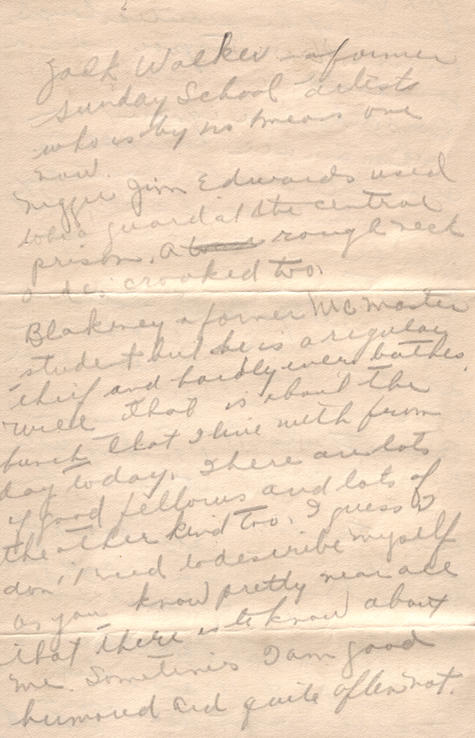 Jack Walker - a former
Sunday School artists
who is by no means one
now.
Jim Edwards used
to be a guard at the central
prison. A rough neck
crooked too.
Blakeney a former McMaster
student but he is a regular
thief and hardly ever bathes.
Well that is about the
bunch that I live with from
day to day. There are lots
of good fellows and lots of
the other kind too. I guess I
don't need to describe myself
as you know pretty near all
that there is to know about
me. Sometimes I am good
humored and quite often not.